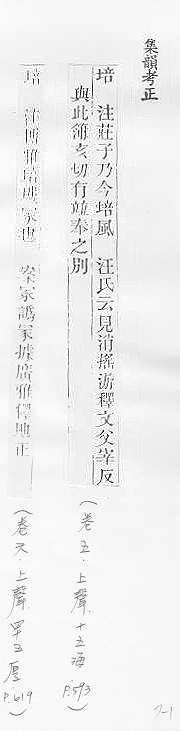 集韻考正
培 注莊子乃今培風 汪氏云見逍搖游釋文父宰反
與此簿亥切有竝奉之別
(卷五．上聲．十五海 P.593)
培 注博雅培塿冢也 案冢譌冡據廣雅釋地正
(卷六．上聲．四十五厚 P.619)
7-1